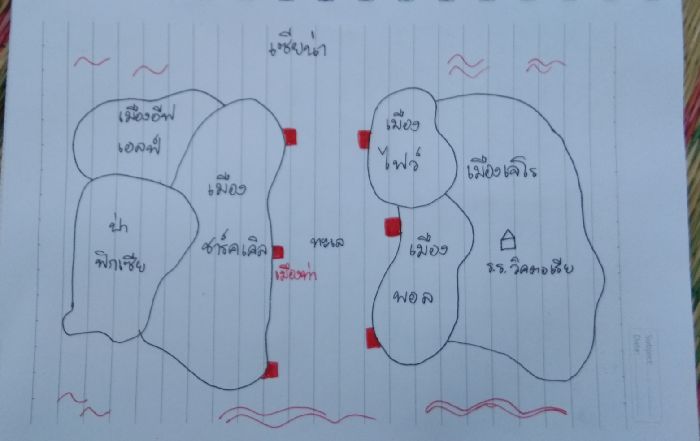 เซียน่า
เมืองอีฟ
เอลฟ์
เมือง
ชาร์คเคิล
ป่า
ฟิกเซีย
ทะเล
เมืองท่า
เมือง
ไฟว์
เมือง
พอล
เมืองเจโร
ร.ร. วิคตอเรีย
Subject
Date